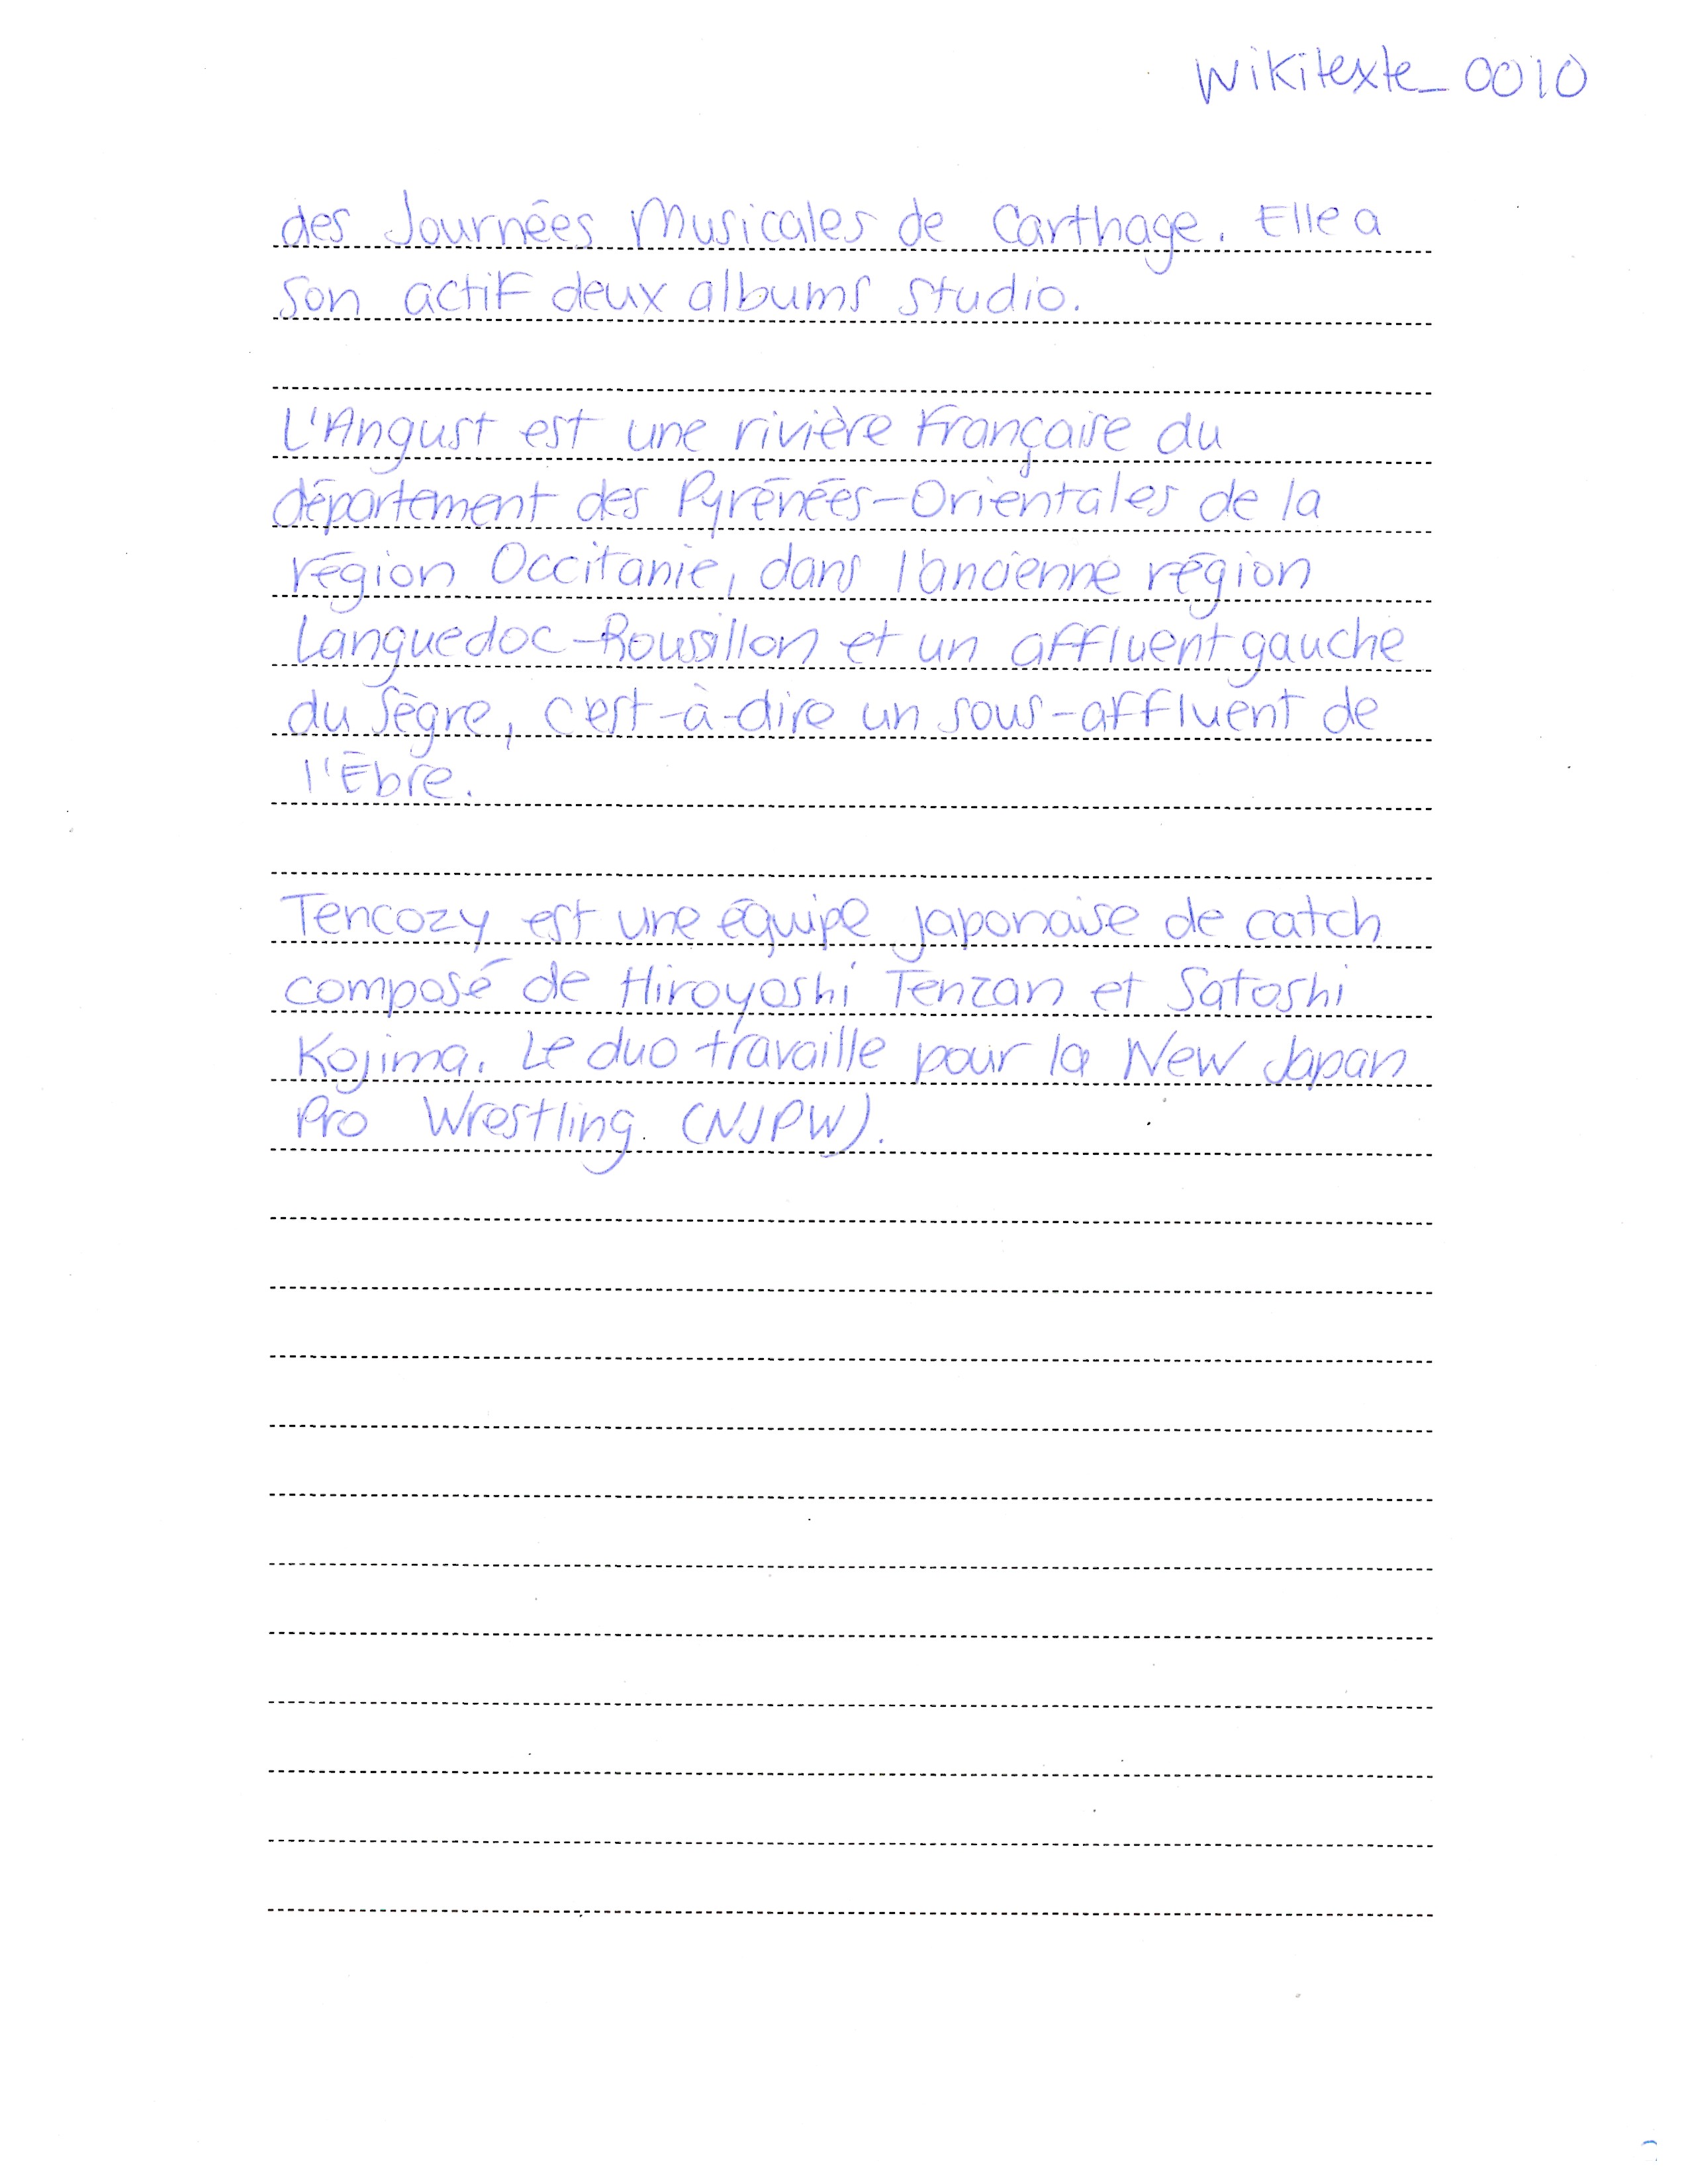 Wikitexte_0010
des Journées Musicales de Carthage. Elle a
son actif deux albums studio.
L'Angust est une rivière française du
département des Pyrénées-Orientales de la
région Occitanie, dans l'ancienne région
Languedoc-Roussillon et un affluent gauche
du Sègre, c'est-à-dire un sous-affluent de
l'Èbre.
Tencozy est une équipe japonaise de catch
composé de Hiroyoshi Tenzan et Satoshi
Kojima. Le duo travaille pour la New Japan
Pro Wrestling. (NJPW).